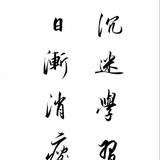 沉迷學習
日漸消瘦